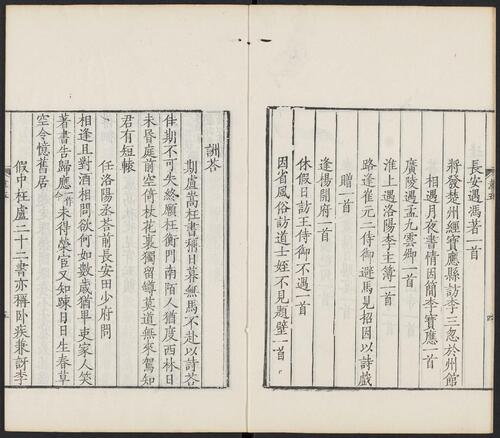 長安遇馮著一首
將發楚州經寶應縣訪李二忽於州館
相遇月夜書情因簡李寶應一首
廣陵遇孟九雲卿一首
淮上遇洛陽李主簿一首
路逢崔元二侍御避馬見招因以詩戲
贈一首
逢楊開府一首
休假日訪王侍御不遇一首
因省風俗訪道士姪不見題壁一首
訓荅
期盧嵩枉書稱日暮無馬不赴以詩荅
佳期不可失終願枉衡門南陌人猶度西林日
未昏庭前空倚杖花裏獨留罇莫道無來駕知
君有短轅
任洛陽丞荅前長安田少府問
相逢且對酒相問欲何如數歲猶卑吏家人笑
著書告歸應未得榮宦又知踈日日生春草
空令憶舊居
假中枉盧二十二書亦稱卧疾兼訝李